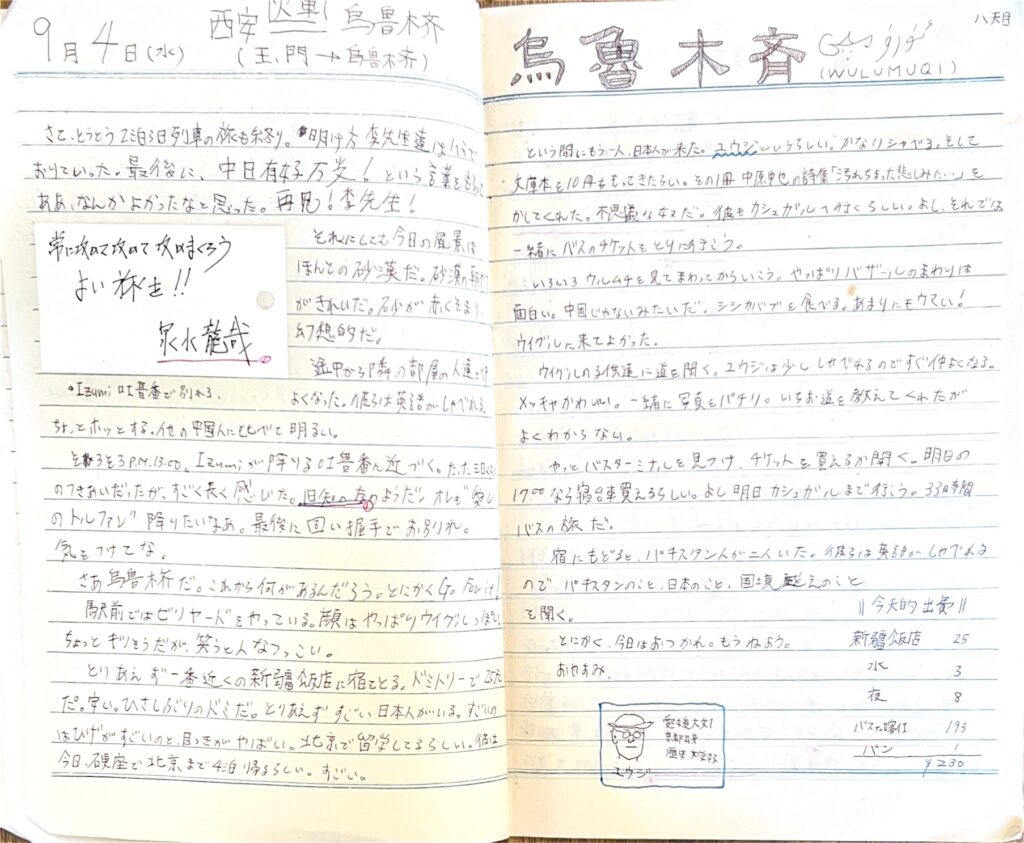 9月4日(水)
西安 火車 烏魯木斉
(玉門→烏魯木斉)
さて、とうとう2泊3日列車の旅も終り。明け方李先生達は
おりていった。最後に、中日有好万岁!という言葉を
ああ、なんかよかったなと思った。再見!李先生!
常に攻めて攻めて攻めまくろう
よい旅を!!
泉水龍哉
それにしても今日の風景は
ほんとの砂漠だ。砂漠の朝
がきれいだ。石少が赤くそまり、
幻想的だ。
途中から隣の部屋の人達と仲
よくなった。彼らは英語がしゃべれる。
*Izumi 吐魯番で別れる
ちょっとホッとする。他の中国人に比べて明るい。
そろそろP.M.13:00。Izumiが降りる吐魯番に近づく。たった三日
のつきあいだったが、すごく長く感じた。旧知の友のようだ。オレも
のトルファンで降りたいなあ。最後に固い握手でお別れ。
気をつけてな。
さあ烏魯木斉だ。これから何があるんだろう。とにかくGo For it!
駅前ではビリヤードをやっている。顔はやっぱりウイグルっぽい。
ちょっとギリそうだが、笑うとんなつっこい。
とりあえず一番近くの新疆飯店に宿をとる。ドミトリーで25元
だ。安い。ひさしぶりのドミだ。とりあえずすごい日本人がいる。すごいの
はひげがすごいのと、目つきがやばい。北京で留学してるらしい。彼は
今日、硬座で北京まで4泊帰るらしい。すごい。
八天目
烏魯木斉
(WULUMUQI)
という間にもう一人、日本人が来た。ユウジというらしい。かなりシャベる。そして
文庫本を10冊ももってきたらしい。その1冊中原中也の詩集「汚れちまった悲しみに…」を
かしてくれた。不思議な女だ。彼もカシュガルへ行くらしい。よし、それでは
一緒にバスのチケットをとりに行こう。
いろいろウルムチを見てまわってからいこう。やっぱりバザールのまわりは
面白い。中国じゃないみたいだ。シシカバブを食べる。あまりにもウマい!
ウイグルに来てよかった。
ウイグルの子供達に道を聞く。ユウジは少ししゃべれるのですぐ仲よくなる。
メッチャかわいい。一緒に写真をパチリ。いちお道を教えてくれたが
よくわからない。
やっとバスターミナルを見つけ、チケットを買えるか聞く。明日の
17:00なら寝台車買えるらしい。よし明日カシュガルまで行こう。33時間
バスの旅だ。
宿にもどると、パキスタン人が二人いた。彼らは英語がしゃべれる
ので、パキスタンのこと、日本のこと、国境越えのこと
を聞く。
とにかく、今日はおつかれ。もうねよう。
おやすみ。
‖今天的出費‖
新疆飯店 25
水 3
夜 8
バス 193
パン 1
¥230
ユウジ